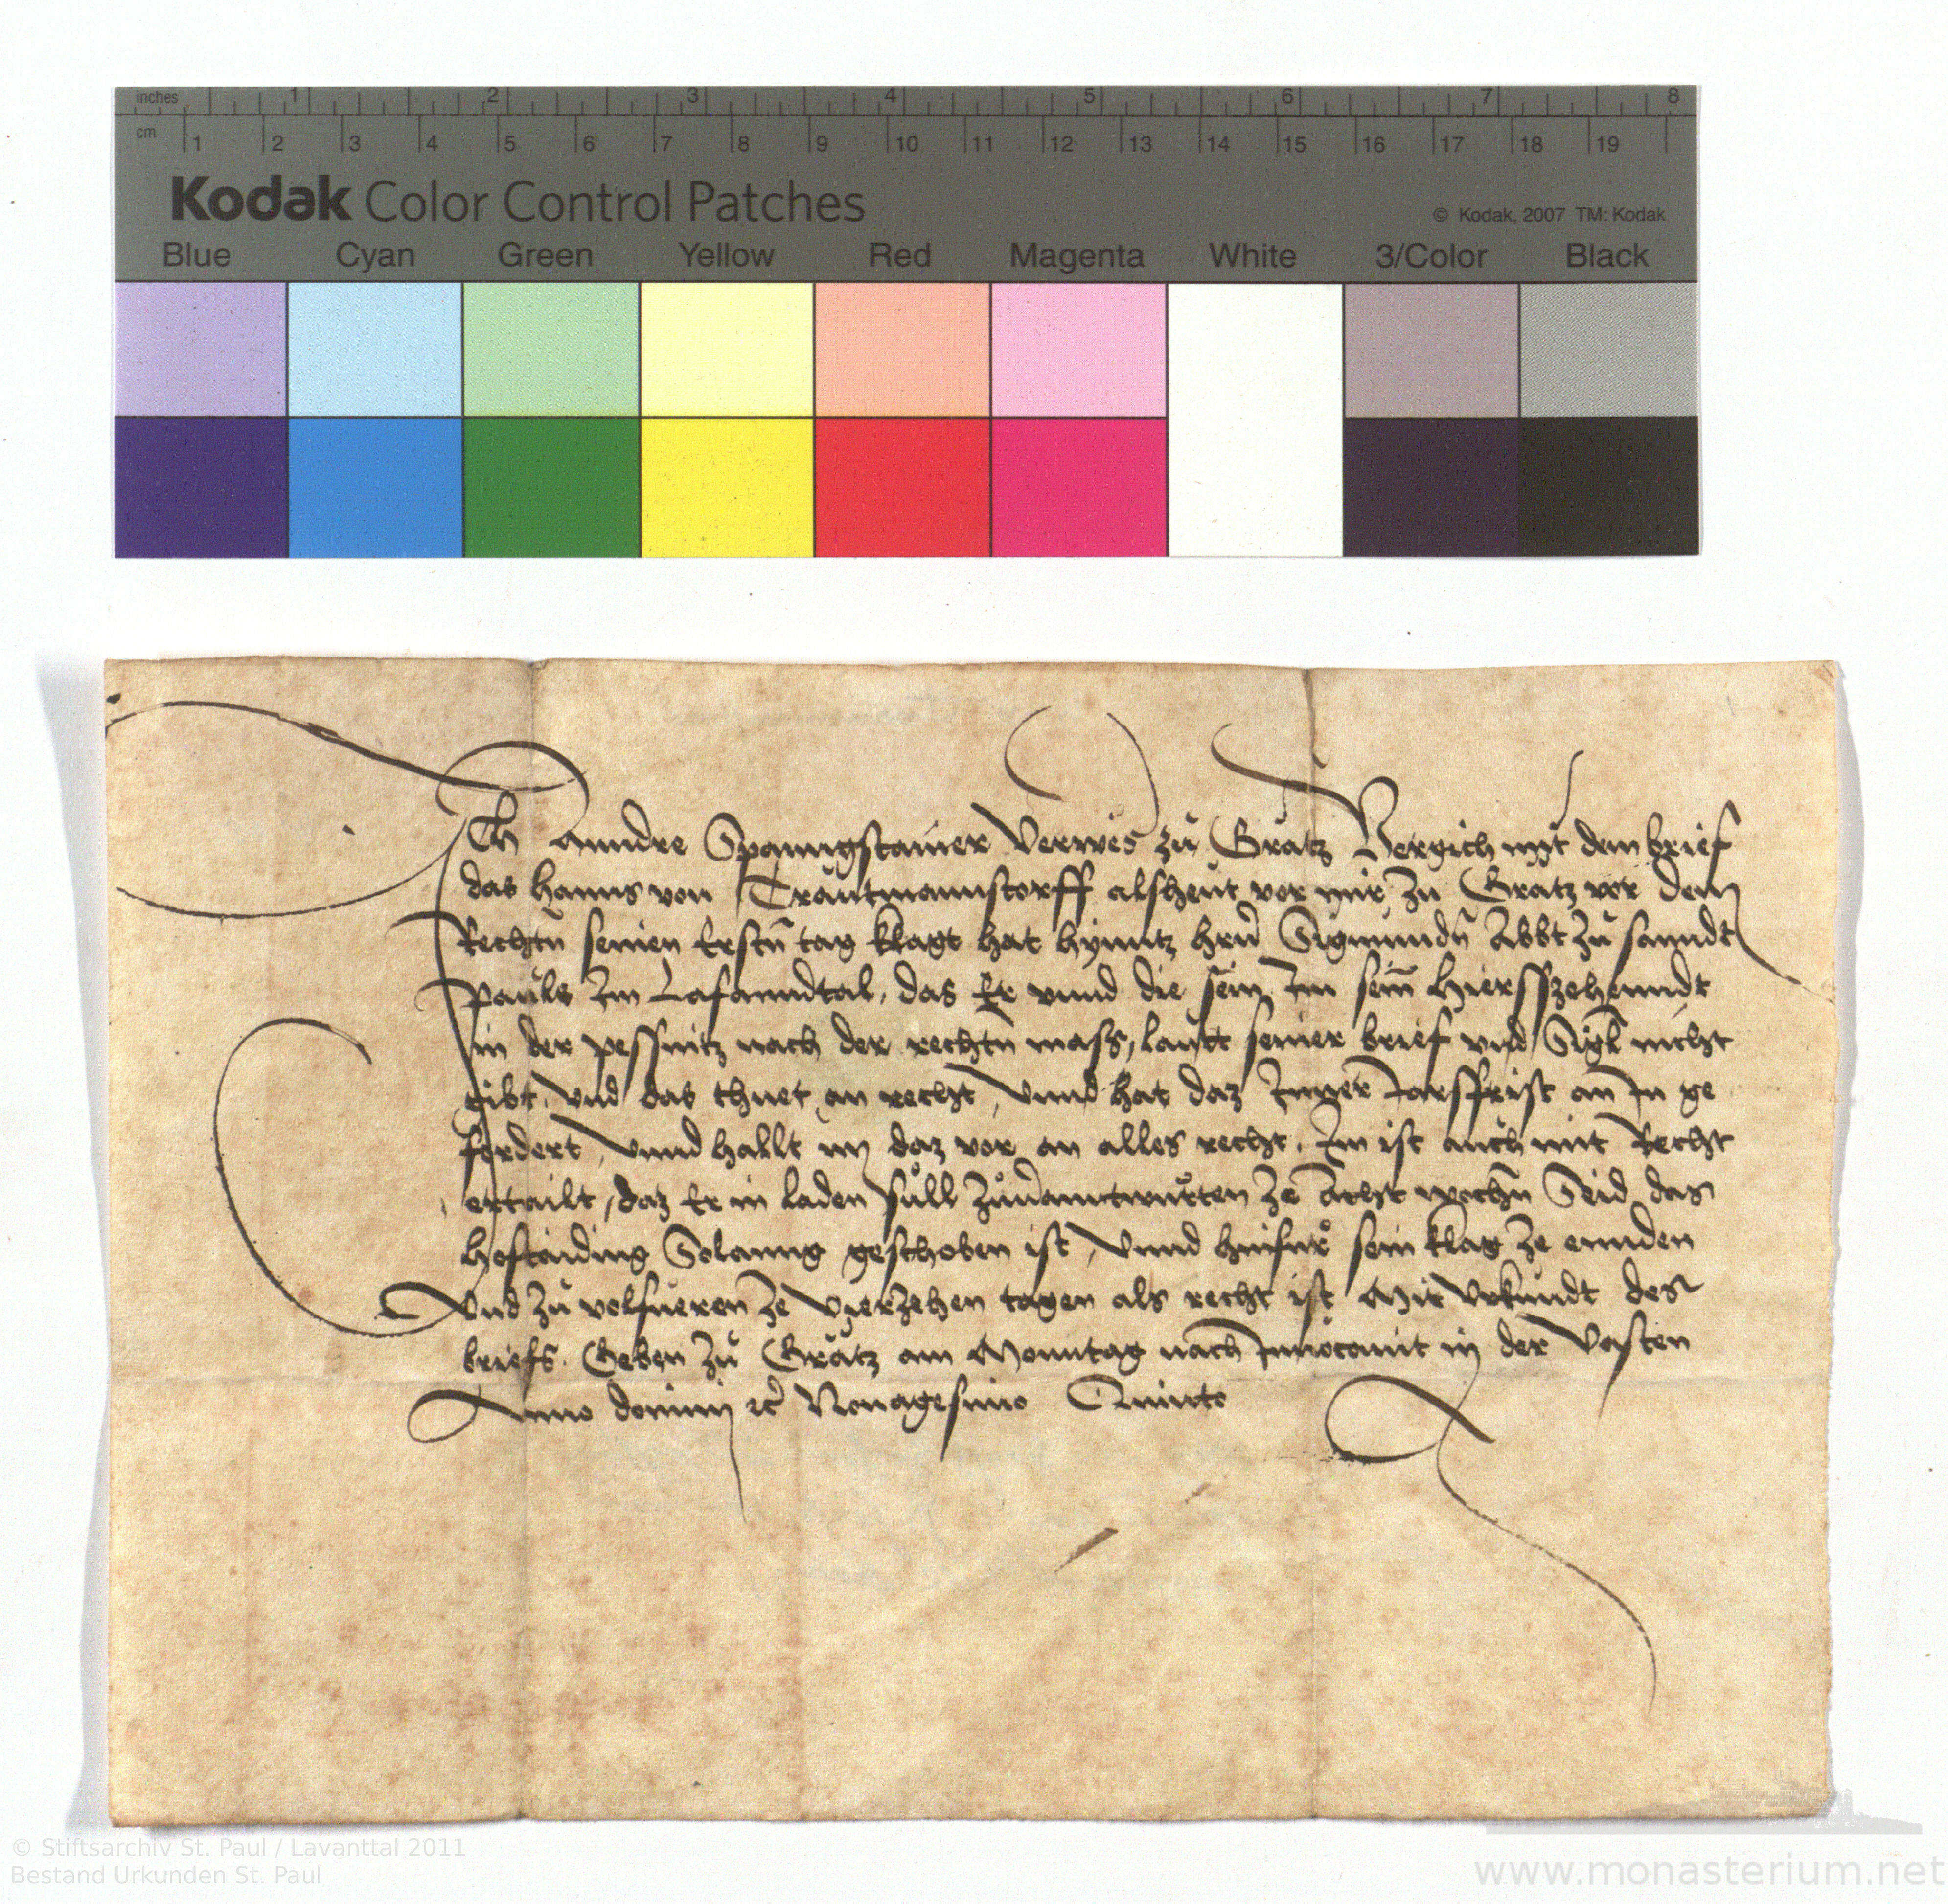 inches 1 2 3 4 5 6 7 8
cm 1 2 3 4 5 6 7 8 9 10 11 12 13 14 15 16 17 18 19
Kodak Color Control Patches
© Kodak, 2007 TM: Kodak
Blue Cyan Green Yellow Red Magenta White 3/Color Black
Ich Anndre Spanngstainer Verwes zů Grätz Vergich mit dem brief
das Hanns von Trautmannstorff alsheut vor mir zu Grätz vor dem
Rechtn̄ seinen Erstn̄ tag klagt hat hynntz hrn̄ Sigmundn̄ Abbt zů sanndt
Pauls Im Lafanndtal, das Er vnnd die sein Im sein̄ Hiersszehenndt
in der pessnitz nach der rechtn̄ mass, lautt seiner brief vnd Sigl nicht
gibt, vnd das thuet an recht, Vnnd hat daz Inner Jarssfrist an In ge
fordert, Vnnd hallt im daz vor an alles recht. Im ist auch mit Recht
ertailt, daz Er in laden süll zůuanntwurtten ze Acht wochn̄ Seid das
hoftaiding Solanng geschoben ist, Vnnd hinfür sein klag ze ennden
Vnd zů volfueren ze Vierzehen tagen als recht ist Mit Vrkundt des
briefs. Geben zů Grätz am Monntag nach Inuocauit in der Vasten
Anno domini etc̄ Nonagesimo Quinto
© Stiftsarchiv St. Paul / Lavanttal 2011
Bestand Urkunden St. Paul
www.monasterium.net